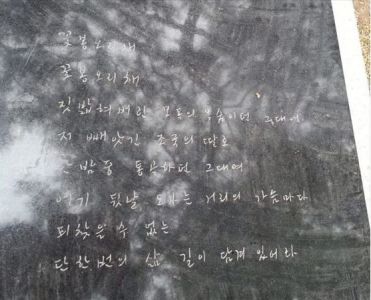 꽃봉오리채
꽃봉오리채
짓밟혀버린 모습이던 그대여
저 빼앗긴 조국의 땅으
밤중 통곡하던 그대여
여기 뒷날 오가는 거리의 가슴마다
되찾을 수 없는
단 한번의 삶 길이 담겨 있어라